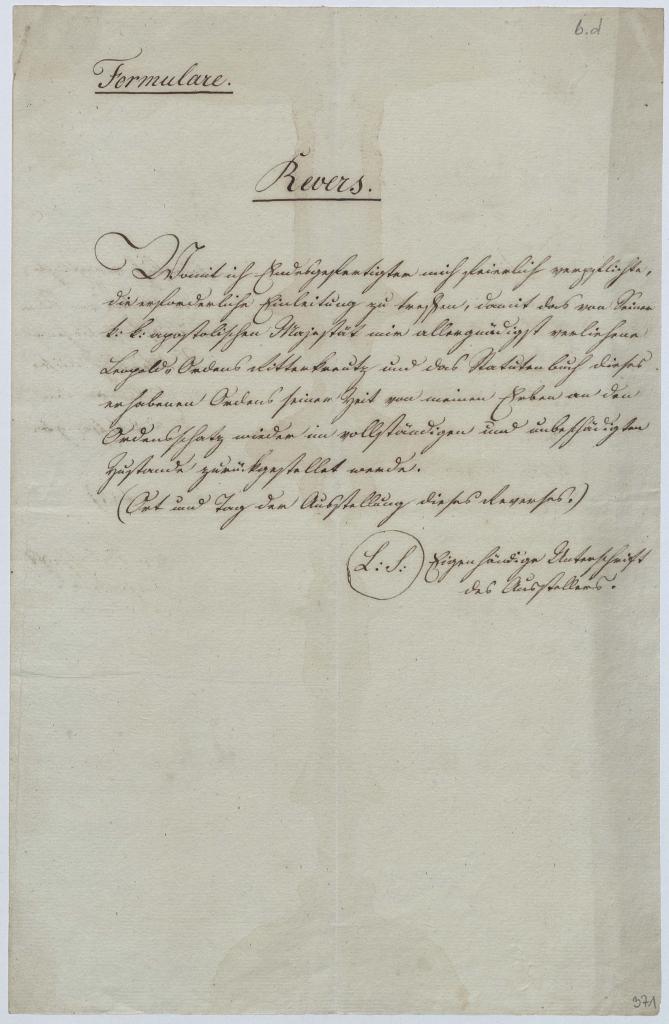 6.d
Formulare.
Revers.
Womit ich Endesgefertigter mich feierlich verpflichte,
die erforderliche Einleitung zu treffen, damit das von Seiner
k: k: apostolischen Majestät mir allergnädigst verliehene
Leopolds Ordens Ritterkreutz und das Statutenbuch dieses
erhabenen Ordens seiner Zeit von meinen Erben an den
Ordensschatz wieder im vollständigen und unbeschädigten
Zustande zurückgestellet werde.
(Ort und Tag der Ausstellung dieses Reverses.)
L: S: Eigenhändige Unterschrift
des Ausstellers.
371